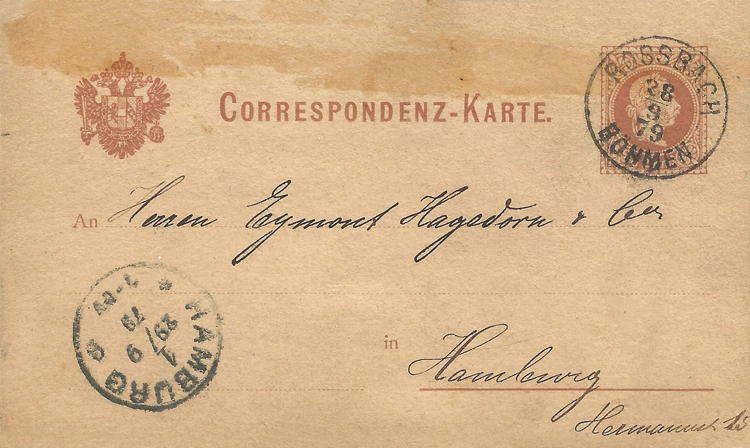 CORRESPONDENZ-KARTE.
ROSSBACH
28
9
79
BÖHMEN
An Herren Egmont Hagedorn & Co
HAMBURG
1
29/9
79
in Hamburg